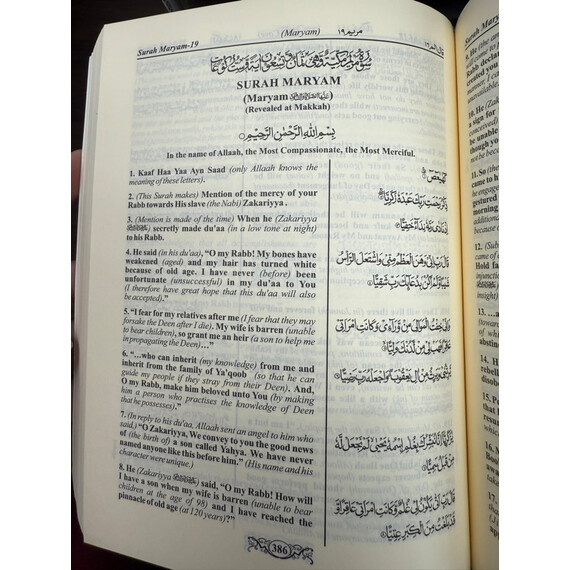 Surah Maryam-19
(Maryam)
مريم ١٩
قال الم ١٦
SURAH MARYAM
(Maryam
(Revealed at Makkah)
بِسْمِ اللهِ الرَّحْمٰنِ الرَّحِيْمِ
In the name of Allaah, the Most Compassionate, the Most Merciful.
1. Kaaf Haa Yaa Ayn Saad (only Allaah knows the
meaning of these letters).
2. (This Surah makes) Mention of the mercy of your
Rabb towards His slave (the Nabi) Zakariyya .
3. (Mention is made of the time) When he (Zakariyya
) secretly made du'aa (in a low tone at night)
to his Rabb.
4. He said (in his du'aa), “O my Rabb! My bones have
weakened (aged) and my hair has turned white
because of old age. I have never (before) been
unfortunate (unsuccessful) in my du'aa to You
(I therefore have great hope that this du'aa will also
be accepted).”
5. “I fear for my relatives after me (I fear that they may
forsake the Deen after I die). My wife is barren (unable
to bear children), so grant me an heir (a son to help me
in propagating the Deen)...”
6. “...who can inherit (my knowledge) from me and
inherit from the family of Ya'qoob (so that he can
guide my people if they stray from their Deen). And,
O my Rabb, make him beloved unto You (by making
him a person who practises the knowledge of Deen
that he possesses).”
7. (In reply to his du'aa, Allaah sent an angel to him who
said,) “O Zakariyya, We convey to you the good news
of (the birth of) a son called Yahya. We have never
named anyone like this before him.” (His name and his
character were unique.)
8. He (Zakariyya ) said, “O my Rabb! How will
I have a son when my wife is barren (unable to bear
children at the age of 98) and I have reached the
pinnacle of old age (at 120 years)?”
كٓهٰيٰعٓصٓ
ذِكْرُ رَحْمَتِ رَبِّكَ عَبْدَهٗ زَكَرِيَّا
اِذْ نَادٰى رَبَّهٗ نِدَآءً خَفِيًّا
قَالَ رَبِّ اِنِّيْ وَهَنَ الْعَظْمُ مِنِّيْ وَاشْتَعَلَ الرَّاْسُ
شَيْبًا وَّلَمْ اَكُنْۢ بِدُعَآئِكَ رَبِّ شَقِيًّا
وَاِنِّيْ خِفْتُ الْمَوَالِيَ مِنْ وَّرَآءِيْ وَكَانَتِ امْرَاَتِيْ
عَاقِرًا فَهَبْ لِيْ مِنْ لَّدُنْكَ وَلِيًّا
يَّرِثُنِيْ وَيَرِثُ مِنْ اٰلِ يَعْقُوْبَ وَاجْعَلْهُ رَبِّ رَضِيًّا
يٰزَكَرِيَّآ اِنَّا نُبَشِّرُكَ بِغُلٰمِ ۨاسْمُهٗ يَحْيٰى لَمْ نَجْعَلْ لَّهٗ
مِنْ قَبْلُ سَمِيًّا
قَالَ رَبِّ اَنّٰى يَكُوْنُ لِيْ غُلٰمٌ وَّكَانَتِ امْرَاَتِيْ عَاقِرًا وَّ
قَدْ بَلَغْتُ مِنَ الْكِبَرِ عِتِيًّا
386